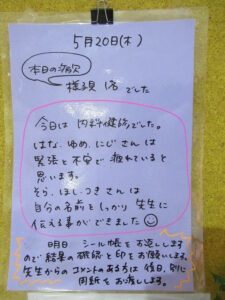 5月20日(木)
本日の欠
様 1名 でした
今日は 内科健診でした。
はな、ゆめ、にじ さんは
緊張と不安で 疲れていると
思います。
そら、ほし、つき さんは
自分の名前をしっかり 先生に
伝える事ができました
明日 シール帳を お返しします
ので 結果の確認と印をお願いします。
先生からの コメントのある方は 後日、別に
用紙を お渡しします。